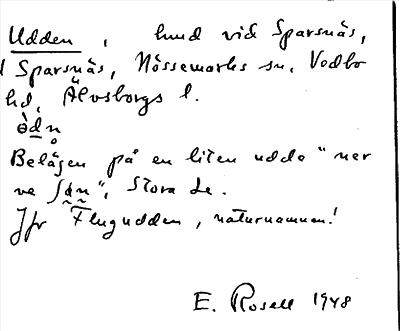 Udden, lund vid Sparsnäs,
Sparsnäs, Nössemarks sn. Vedbo
hd, Älvsborgs l.
òdn̥
Belägen på en liten udde "ner
ve", Stora Le.
Jfr Flugudden, naturnamnen!
E. Rosell 1948